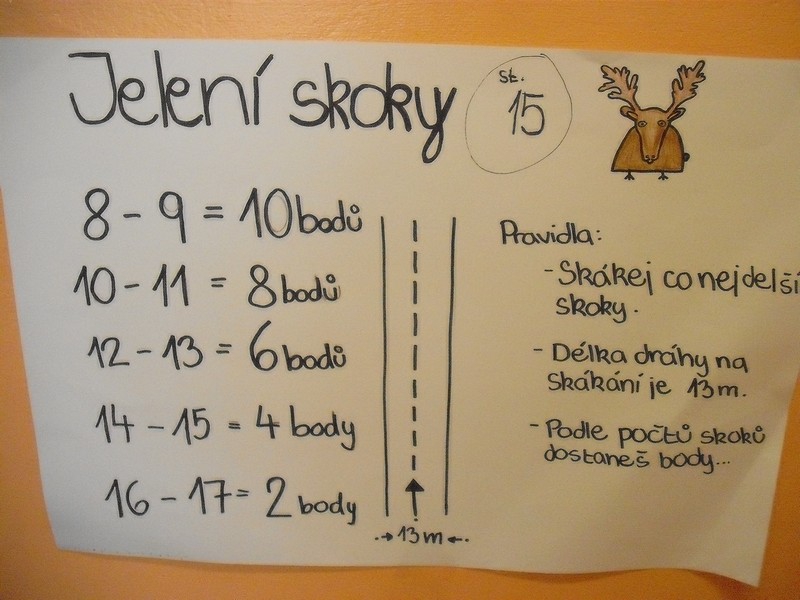 Jelení skoky
st.
15
8 - 9 = 10 bodů
10 - 11 = 8 bodů
12 - 13 = 6 bodů
14 - 15 = 4 body
16 - 17 = 2 body
13m
Pravidla:
- Skákej co nejdelší
skoky.
- Délka dráhy na
skákání je 13m.
- Podle počtů skoků
dostaneš body...